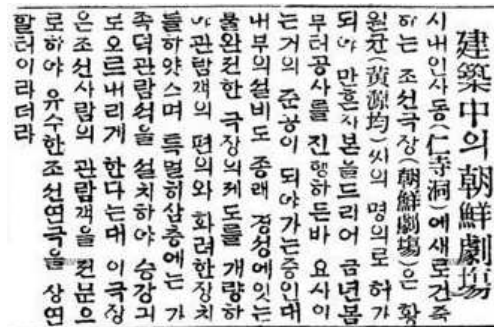 建築中의朝鮮劇場
시내인사동(仁寺洞)에새로건축
하는 조선극장(朝鮮劇場)은 황
원균(黃源均)씨의 명의로 허가
되야 만흔자본을드리어 금년봄
부터공사를 진행하든바 요사이
는거의 준공이 되야가는중인대
내부의설비도 종래 경성에잇는
불완전한 극장의제도를 개량하
야관람객의 편의와 화려한장치
를하얏스며 특별히삼층에는 가
족덕관람석을 설치하야 승강긔
도오르내리게 한다는대 이극장
은조선사람의 관람객을 젼문으
로하야 유수한조선연극을 상연
할터이라더라